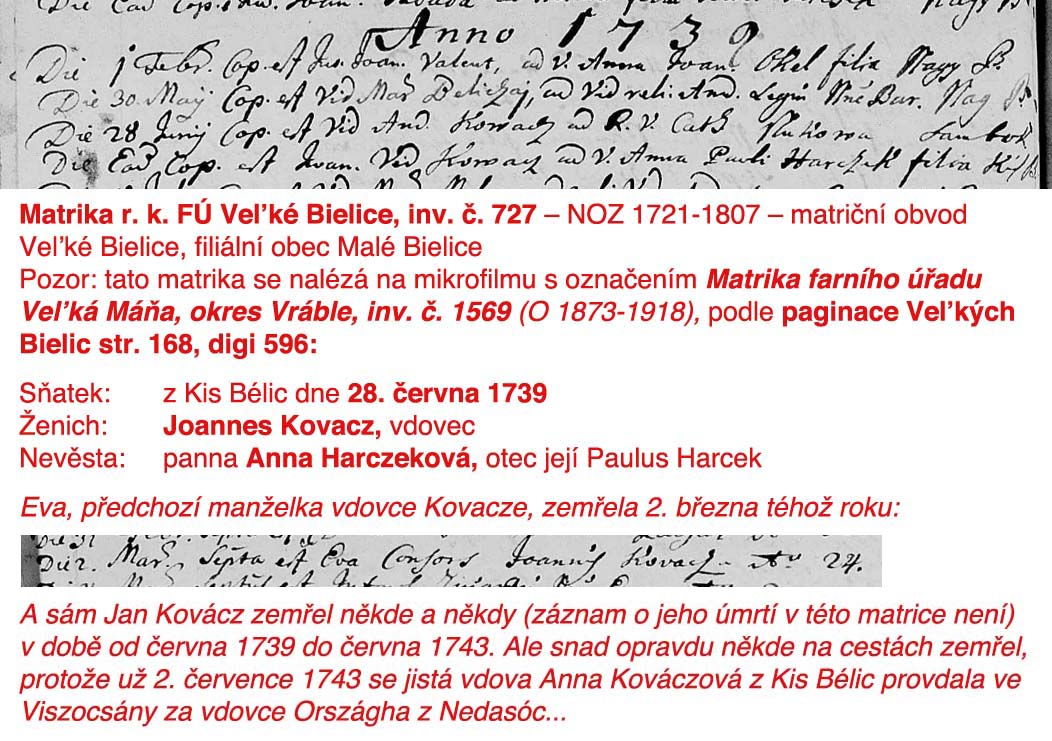 Anno 1739
Die 1 Febr. Cop. est Juv. Joan. Valent, ad V. Anna Joan. Okel filia Nagy B.
Die 30. Maij Cop. est Vid Beliczaj, ad Vid reli. And. Nag
Die 28 Junij Cop. est Vid And. Kowacz ad R. V. Cath
Die Ead Cop. est Joan. Vid Kowacz ad V. Anna Pauli Harczek filia
Matrika r. k. FÚ Veľké Bielice, inv. č. 727 – NOZ 1721-1807 – matriční obvod
Veľké Bielice, filiální obec Malé Bielice
Pozor: tato matrika se nalézá na mikrofilmu s označením Matrika farního úřadu
Veľká Máňa, okres Vráble, inv. č. 1569 (O 1873-1918), podle paginace Veľkých
Bielic str. 168, digi 596:
Sňatek: z Kis Bélic dne 28. června 1739
Ženich: Joannes Kovacz, vdovec
Nevěsta: panna Anna Harczeková, otec její Paulus Harcek
Eva, předchozí manželka vdovce Kovacze, zemřela 2. března téhož roku:
Die 2. Mar. Septa est Eva Consors Joannis Kovacz Ao 24.
A sám Jan Kovácz zemřel někde a někdy (záznam o jeho úmrtí v této matrice není)
v době od června 1739 do června 1743. Ale snad opravdu někde na cestách zemřel,
protože už 2. července 1743 se jistá vdova Anna Kováczová z Kis Bélic provdala ve
Viszocsány za vdovce Országha z Nedasóc...